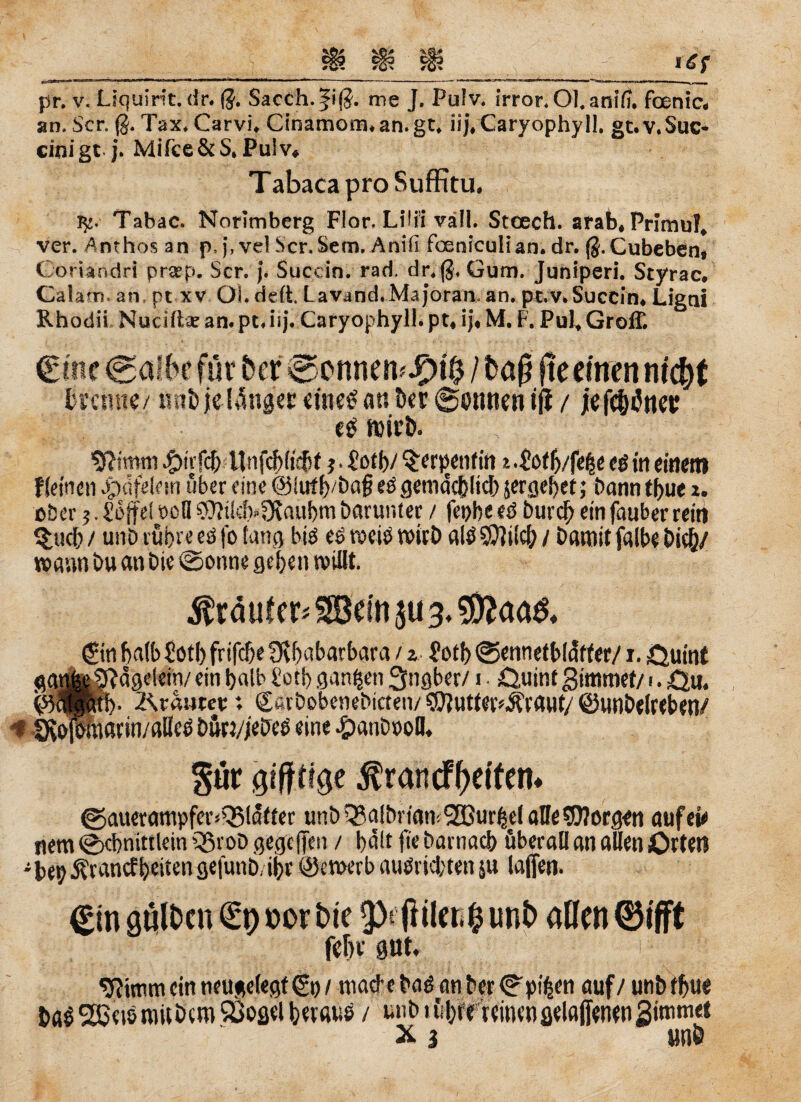 165
pr. v. Liquirit. dr. ß. Sacch. ℥iß. me J. Pulv. irror. Ol. anisi. fœnic.
an. Scr. ß. Tax. Carvi. Cinamom. an. gt. iij. Caryophyll. gt. v. Suc-
cini gt. j. Misce & S. Pulv.
Tabaca pro Suffitu.
℞. Tabac. Norimberg Flor. Lilii vall. Stœch. arab. Primul.
ver. Anthos an p. j. vel Scr. Sem. Anisi fœniculi an. dr. ß. Cubeben,
Coriandri præp. Scr. j. Succin. rad. dr. ß. Gum. Juniperi. Styrac.
Calam. an. pt xv Ol. dest. Lavand. Majoran. an. pt. v. Succin. Ligni
Rhodii Nucistæ an. pt. iij. Caryophyll. pt. ij. M. F. Pul. Groff.
Eine Salbe für der Sonnen-Hitz / daß sie einen nicht
brenne / und je länger eines an der Sonnen ist / je schöner
es wird.
Nimm Hirsch-Unschlicht 3. Loth / Terpentin 2. Loth / setze es in einem
kleinen Häfelein über eine Gluth / daß es gemächlich zergehet; dann thue 2.
oder 3. Löffel voll Milch-Rauhm darunter / seyhe es durch ein sauber rein
Tuch / und rühre es so lang bis es weis wird als Milch / damit salbe dich /
wann du an die Sonne gehen willt.
Kräuter-Wein zu 3. Maas.
Ein halb Loth frische Rhabarbara / 2. Loth Sennetblätter / 1. Quint
gantze Nägelein / ein halb Loth gantzen Ingber / 1. Quint Zimmet / 1. Qu.
Kräuter: Cardobenedicten / Mutter-Kraut / Gundelreben /
Rosmarin / alles dürr / jedes eine Handvoll.
Für gifftige Kranckheiten.
Sauerampfer-Blätter und Baldrian-Wurtzel alle Morgen auf ei-
nem Schnittlein Brod gegessen / hält sie darnach überall an allen Orten
bey Kranckheiten gesund, ihr Gewerb ausrichten zu lassen.
Ein gülden Ey vor die Pestilentz und allen Gifft
sehr gut.
Nimm ein neugelegt Ey / mache das an der Spitzen auf / und thue
das Weis mit dem Vogel heraus / und rühre reinen gelassenen Zimmet
X 3 und